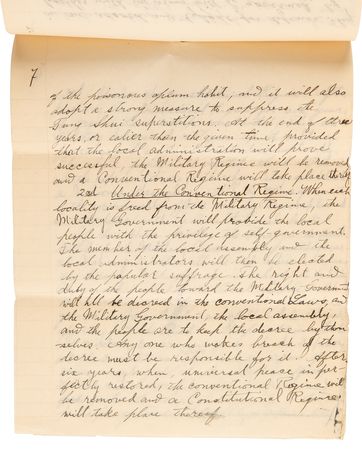 7
of the poisonous opium habit, and it will also
adopt a strong measure to suppress the
Fung Shui superstitions. At the end of three
years, or ealier than the given time, provided
that the local administration will prove
successful, the Military Regime will be removed
and a Conventional Regime will take place thereof.
2nd. Under the Conventional Regime. When each
locality is freed from the Military Regime, the
Military Government will provide the local
people with the privilege of self-government.
The member of the local Assembly and the
local administrators will then be elected
by the popular suffrage. The right and
duty of the people toward the Military Government
will all be decreed in the conventional Laws, and
the Military Government, the local assembly
and the people are to keep the decree by them
selves. Any one who makes breach of the
decree must be responsible for it. After
six years, when, universal peace is per-
fectly restored, the conventional Regime will
be removed and a Constitutional Regime
will take place thereof